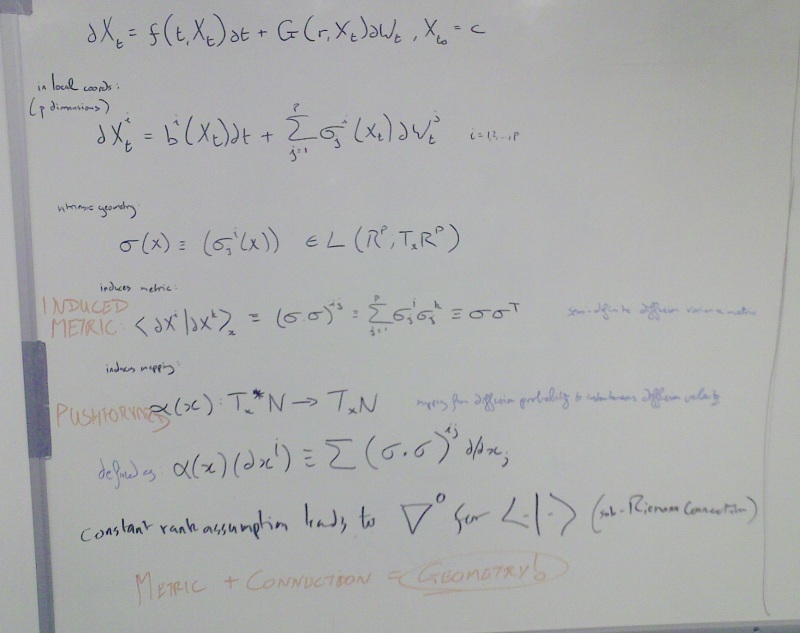 ∂X_t = f(t,X_t)∂t + G(r,X_t)∂W_t , X_t₀ = c
in local coords:
(p dimensions)
∂X_t^i = b^i(X_t)∂t + Σ_{j=1}^p σ_j^i (X_t)∂W_t^j   i=1,2...,p
intrinsic geometry:
σ(x) ≡ (σ_j^i(x)) ∈ L (R^p, T_xR^p)
induces metric:
INDUCED METRIC: <∂X^i|∂X^k>_x ≡ (σ.σ)^{ij} ≡ Σ_{j=1}^p σ_j^i σ_j^k ≡ σσ^T   semi-definite diffusion variance metric
induces mapping:
PUSHFORWARD α(x): T_x*N → T_xN   mapping from diffusion probability to instantaneous diffusion velocity
defined as: α(x)(∂x^i) ≡ Σ (σ.σ)^{ij} ∂/∂x_j
Constant rank assumption leads to ∇^0 for <.|.> (sub-Riemann Connection)
METRIC + CONNUCTION = GEOMETRY!